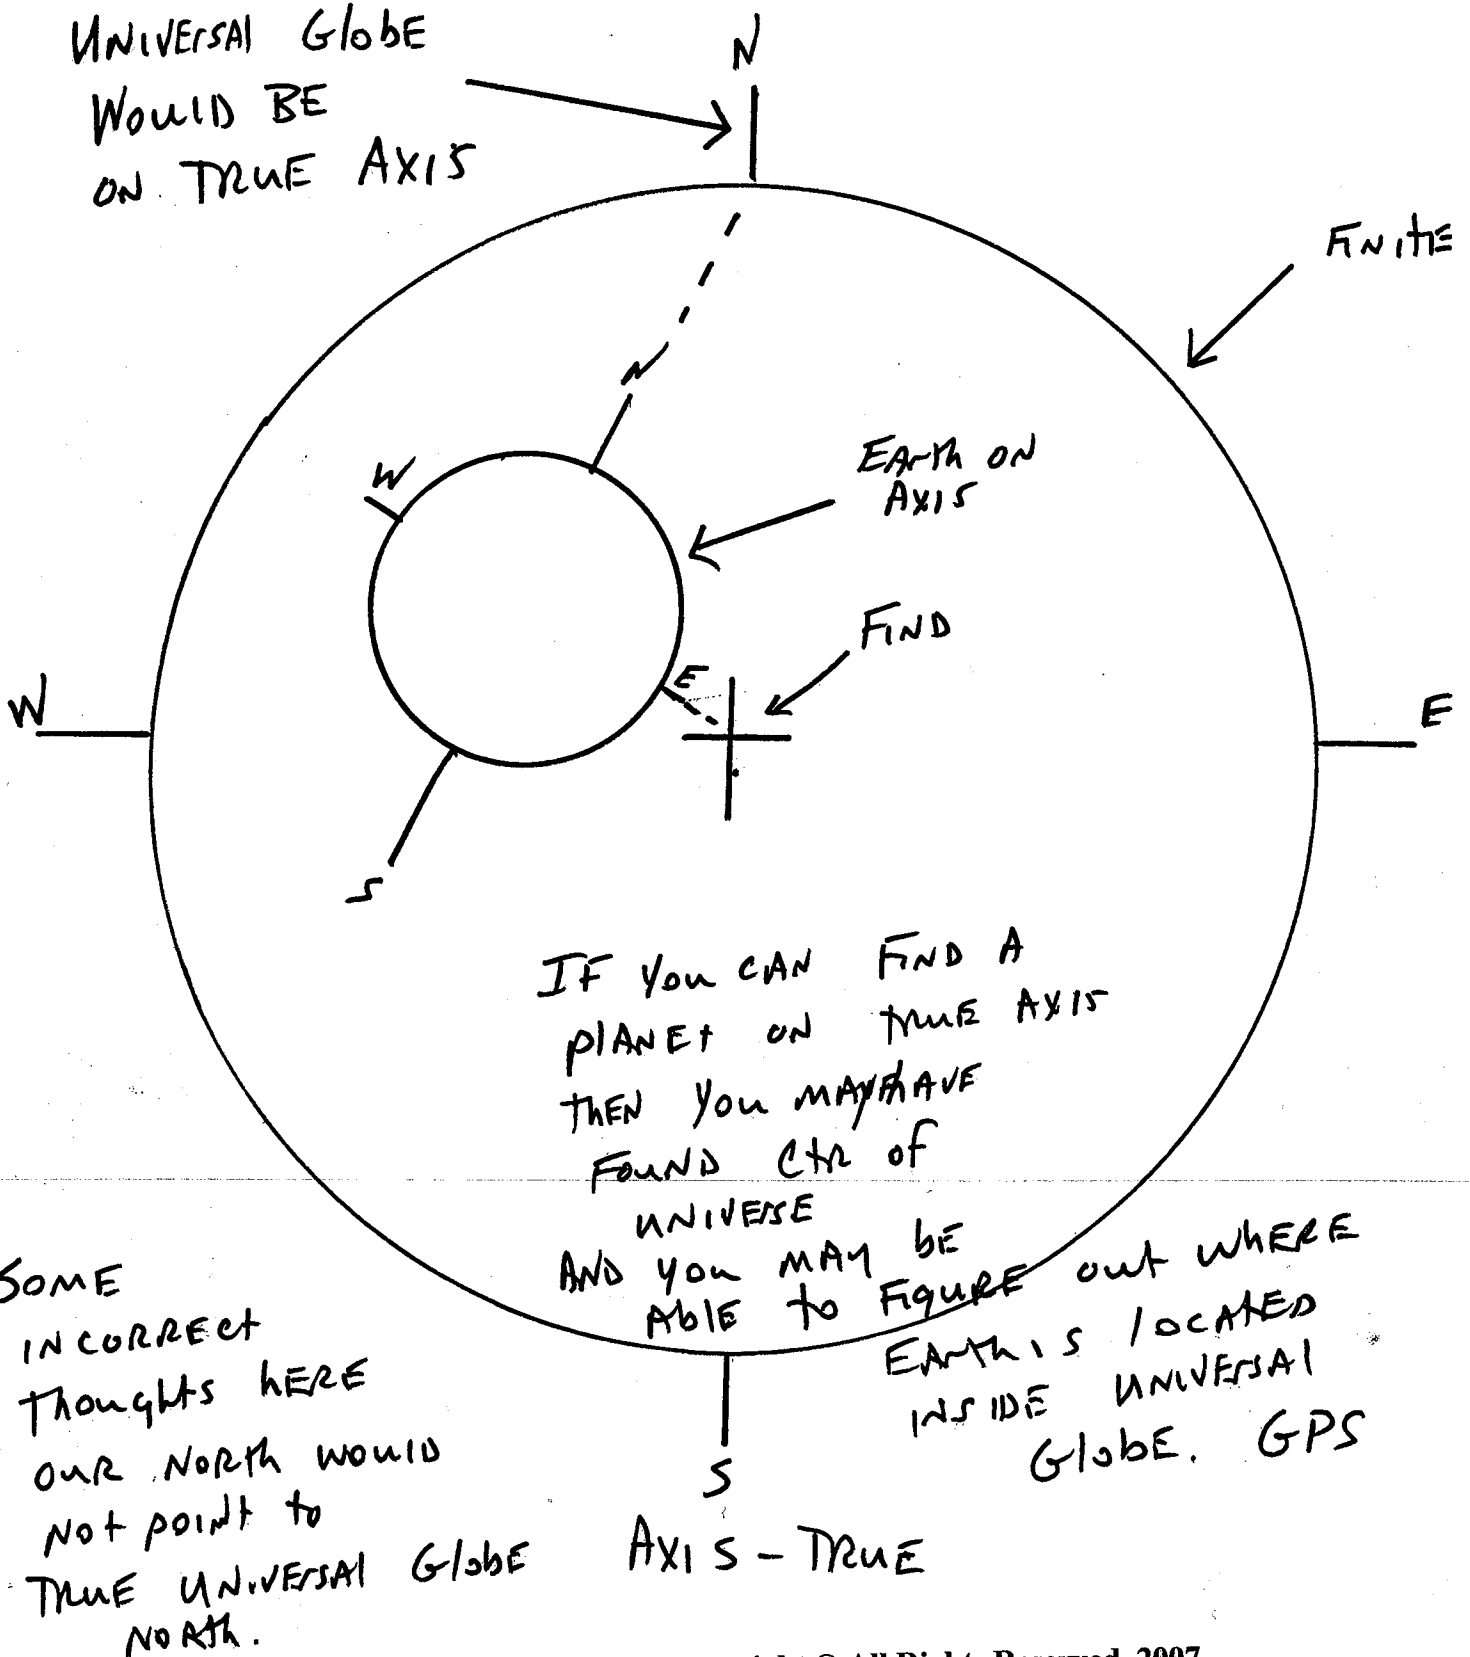 UNIVERSAl GlobE
WOulD BE
ON TRuE AXIS
N
FiNItE
N
W
EArth ON
AXIS
FIND
E
W
E
S
IF You CAN FIND A
PlANEt ON truE AXIS
thEN You MAY HAVE
FOuND Ctr of
uNIVErsE
AND you MAY bE
AblE to FIgURE out WhERE
EArth is locAtED
INSIDE uNIVErSAl
GlobE. GPS
SOME
INCORRECt
thoughts hERE
OUR NORth would
Not poiNt to
TRuE UNiVErSAl GlobE
NoRth.
S
AXIS - TRuE
© All Rights Reserved 2007